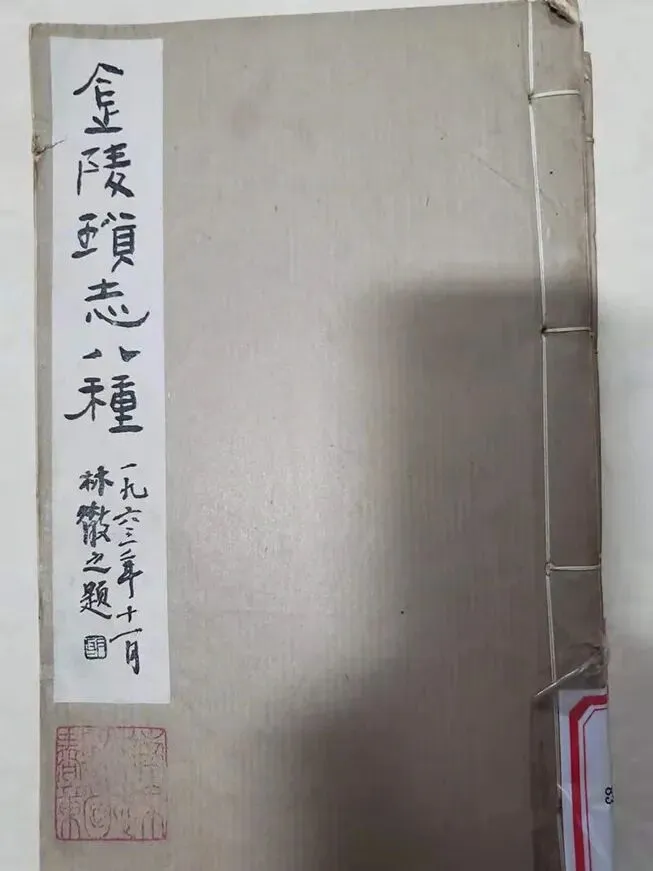 金陵瑣志八種
一九六三年十一月
林散之題